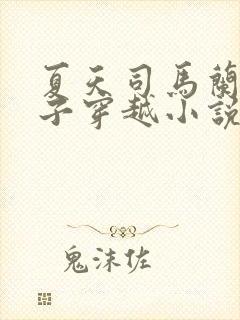 夏天司馬蘭
子穿越小說
鬼沫佐